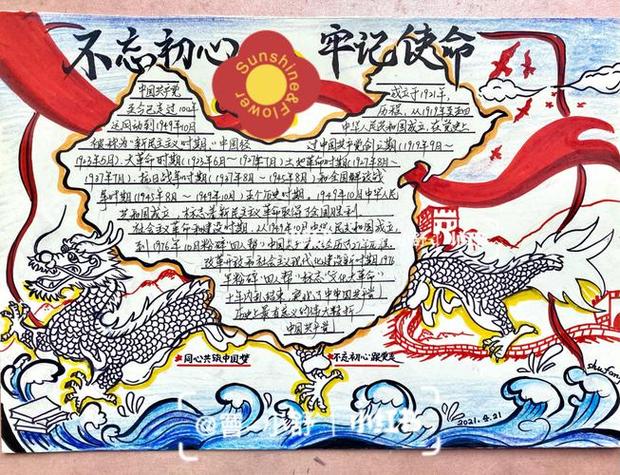 不忘初心 牢记使命
Sunshine&Flower
中国共产党 成立于1921年
至今已走过100年 历程,从1919年五四
运动到1949年10月 中华人民共和国成立,在党史上
被称为"新民主义时期",中国经 过中国共产党创立期(1919年9月~
1923年5月),大革命时期(1923年6月~1927年7月)土地革命时期(1927年8月~
1937年7月),抗日战争时期(1937年8月~1945年8月)和全国解放战
争时期(1945年8月~1949年10月)五个历史时期,1949年10月中华人民
共和国成立,标志着新民主义革命取得了全国胜利.
社会主义革命和建设时期,从1949年10月中华人民共和国成立,
到1976年10月粉碎"四人帮"
改革开放和社会主义现代化建设新时期1976
年粉碎"四人帮"标志"文化大革命"
十年内乱结束
历史上最有意义的伟大转折
中国共产党
同心共筑中国梦
不忘初心跟党走
shufang
2021.4.21
小红书